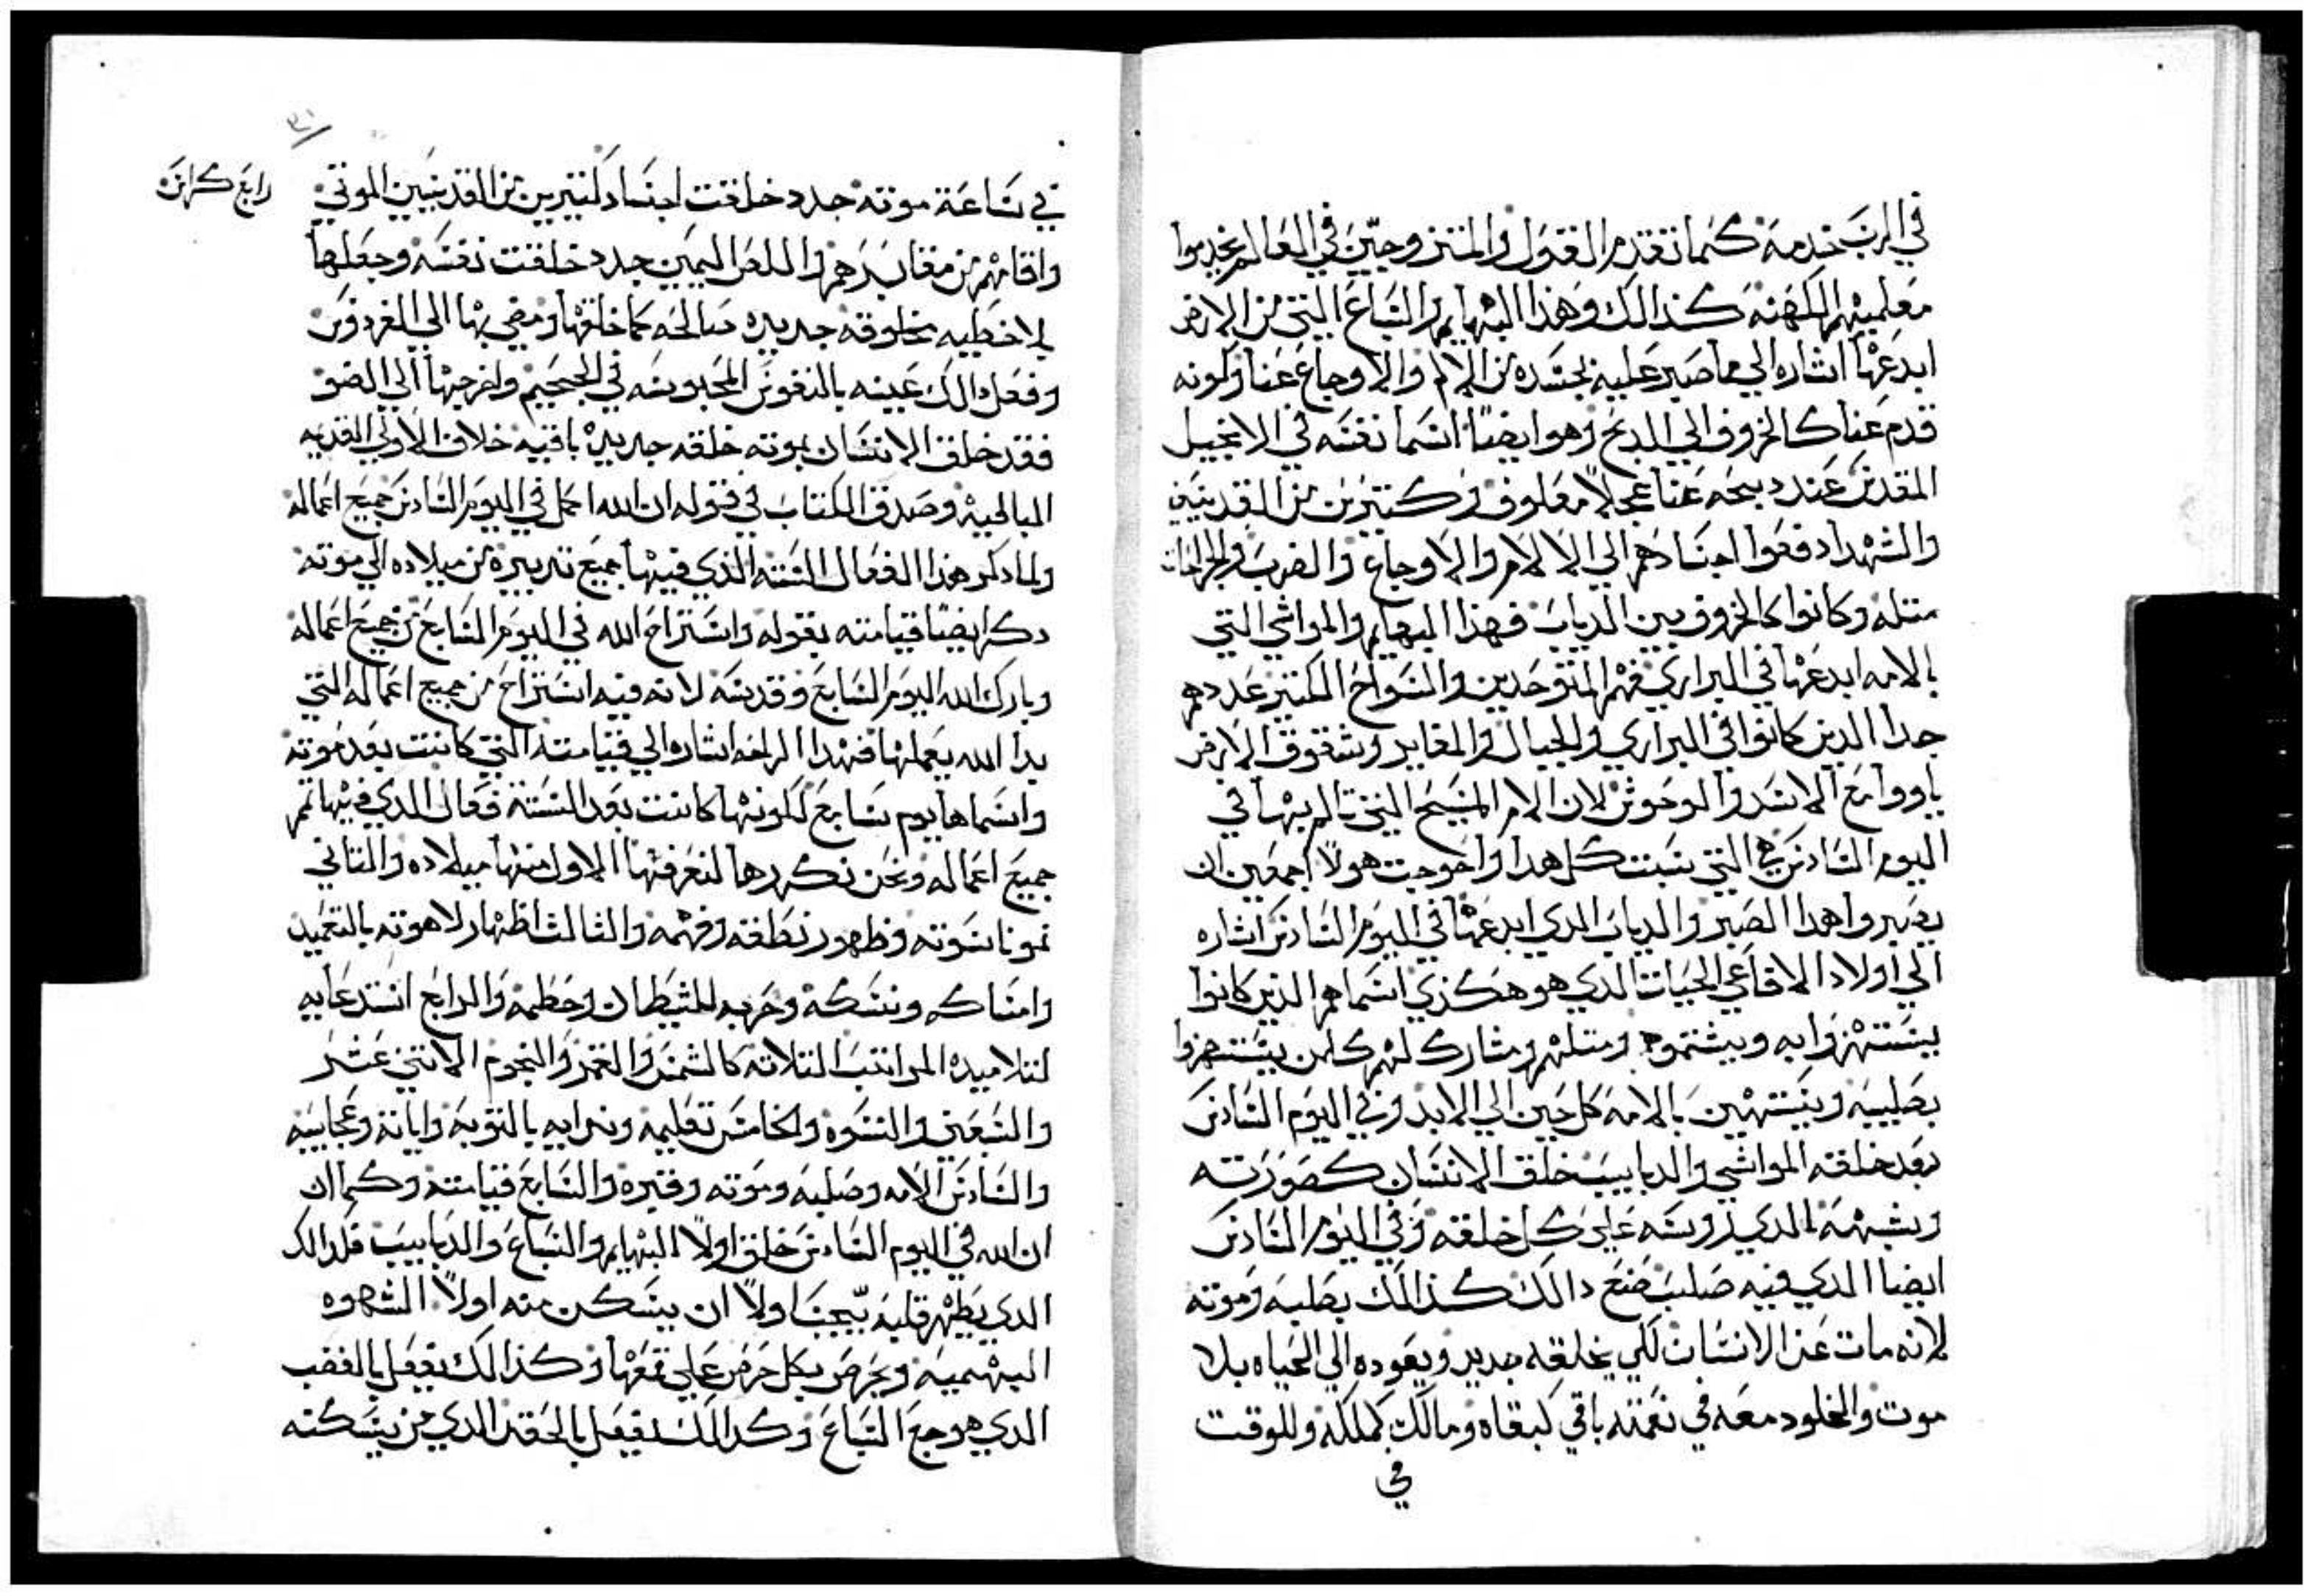 في الرب خدمة كما تقدم القول والمتزوجين في العالم يخدموا
معلميهم الكهنة كذالك وهذا البهايم والسباع التي من الارض
ابدعها اشاره الي ما صبر عليه بجسده من الالام والاوجاع عنا وكونه
قدم عنا كالخروف الي الدبح وهو ايضًا اسما نفسه في الانجيل
المقدس عند دبيحه عنا عجلاً معلوف وكتيرين من القديسين
والشهدا دفعوا اجسادهم الي الالام والاوجاع والضرب والجراحات
متله وكانوا كالخروف بين الدياب فهذا البهايم والمواشي التي
بالامه ابدعها في البراري فهم المتوحدين والسواح الكتير عددهم
جدا الدين كانوا في البراري والجبال والمغاير وشقوق الارض
ياووا مع الاسد والوحوش لان الام المسيح التي تالم بها في
اليوم السادس هي التي سببت كل هدا واحوجت هولا اجمعين ان
يصبروا هدا الصبر والدياب الدي ابدعها في اليوم السادس اشاره
الي اولاد الافاعي الحيات الدي هو هكذي اسماهم الذين كانوا
يستهزوا به ويشتموه ومتلهم ومشارك لهم كلمن يستهزوا
بصليبه ويستهين بالامه كل حين الي الابد وفي اليوم السادس
بعد خلقته المواشي والدبابيب خلق الانسان كصورته
وبشبهه الدي زوسه علي كل خلقته وفي اليوم السادس
ايضا الدي فيه صلب صنع دالك كذالك بصلبه وموته
لانه مات عن الانسان لكي يخلقه جديد ويعوده الي الحياه بلا
موت والخلود معه في نعمته باقي كبقاه ومالك كملكه وللوقت
في
٣١
رابع كراس
في ساعة موته جدد خلقت اجساد كتيرين من القديسين الموتي
واقامهم من مقابرهم واللص اليمين جدد خلقت نفسه وجعلها
بلا خطيه مخلوقه جديده صالحه كما خلقها ومضي بها الي الفردوس
وفعل دالك عينه بالنفوس المحبوسه في الجحيم واخرجها الي الضو
فقد خلق الانسان بموته خلقه جديدة باقيه خلاف الاولي القديه
البالية وصدق الكتاب في قوله ان الله اكمل في اليوم السادس جميع اعماله
ولما دكر هذا الفعال الستة الذي فيها جميع تدبيره من ميلاده الي موته
دكر ايضًا قيامته بقوله واستراح الله في اليوم السابع من جميع اعماله
وبارك الله اليوم السابع وقدسه لانه فيه استراح من جميع اعماله التي
بدا الله يعملها فهدا الراحه اشاره الي قيامته التي كانت بعد موته
واسماها يوم سابع لكونها كانت بعد الستة فعال الدي فيها تمم
جميع اعماله ونحن نكررها لنعرفها الاول منها ميلاده والتاني
نمو ناسوته وظهور نطقه وفهمه والثالث اظهار لاهوته بالتعميد
وامساكه ونسكه وحربه للشيطان وحطمه والرابع استدعايه
لتلاميده المراتب التلاته كالشمس والقمر والنجوم الاتني عشر
والسبعين والنسوه والخامس تعليمه وندايه بالتوبة واياته وعجايبه
والسادس الامه وصلبه وموته وقبره والسابع قيامته وكما ان
ان الله في اليوم السادس خلق اولاً البهايم والسباع والدبابيب فلدالك
الدي يطهر قلبه يجب اولاً ان يسكن منه اولاً الشهوه
البهمية ويحرص بكل حرص علي قمعها وكذالك يفعل بالغضب
الدي هو وجع السباع وكدالك يفعل بالحقد الدي من يسكنه